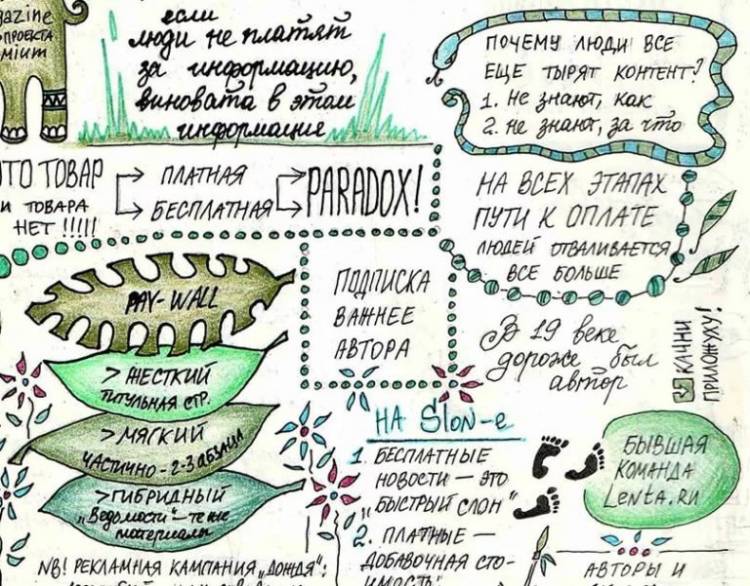 azine
ПРОЕКТА
МIUM
если
люди не платят
за информацию,
виновата в этом
информация
ПОЧЕМУ ЛЮДИ ВСЕ
ЕЩЕ ТЫРЯТ КОНТЕНТ?
1. НЕ ЗНАЮТ, КАК
2. НЕ ЗНАЮТ, ЗА ЧТО
ЭТО ТОВАР
И ТОВАРА
НЕТ !!!!!
ПЛАТНАЯ
БЕСПЛАТНАЯ
PARADOX!
НА ВСЕХ ЭТАПАХ
ПУТИ К ОПЛАТЕ
ЛЮДЕЙ ОТВАЛИВАЕТСЯ
ВСЕ БОЛЬШЕ
PAY-WALL
> ЖЕСТКИЙ
ТИТУЛЬНАЯ СТР.
> МЯГКИЙ
ЧАСТИЧНО - 2-3 АБЗАЦА
> ГИБРИДНЫЙ
„Ведомости" - те же
материалы
NB! РЕКЛАМНАЯ КАМПАНИЯ „ДОЖДЯ":
ПОДПИСКА
ВАЖНЕЕ
АВТОРА
В 19 веке
дороже был
автор
КАЧНИ
ПРИЛОЖУХУ!
НА Slon-е
1. БЕСПЛАТНЫЕ
НОВОСТИ — ЭТО
„БЫСТРЫЙ СЛОН"
2. ПЛАТНЫЕ —
ДОБАВОЧНАЯ СТО-
ИМОСТЬ:
БЫВШАЯ
КОМАНДА
Lenta.ru
АВТОРЫ И